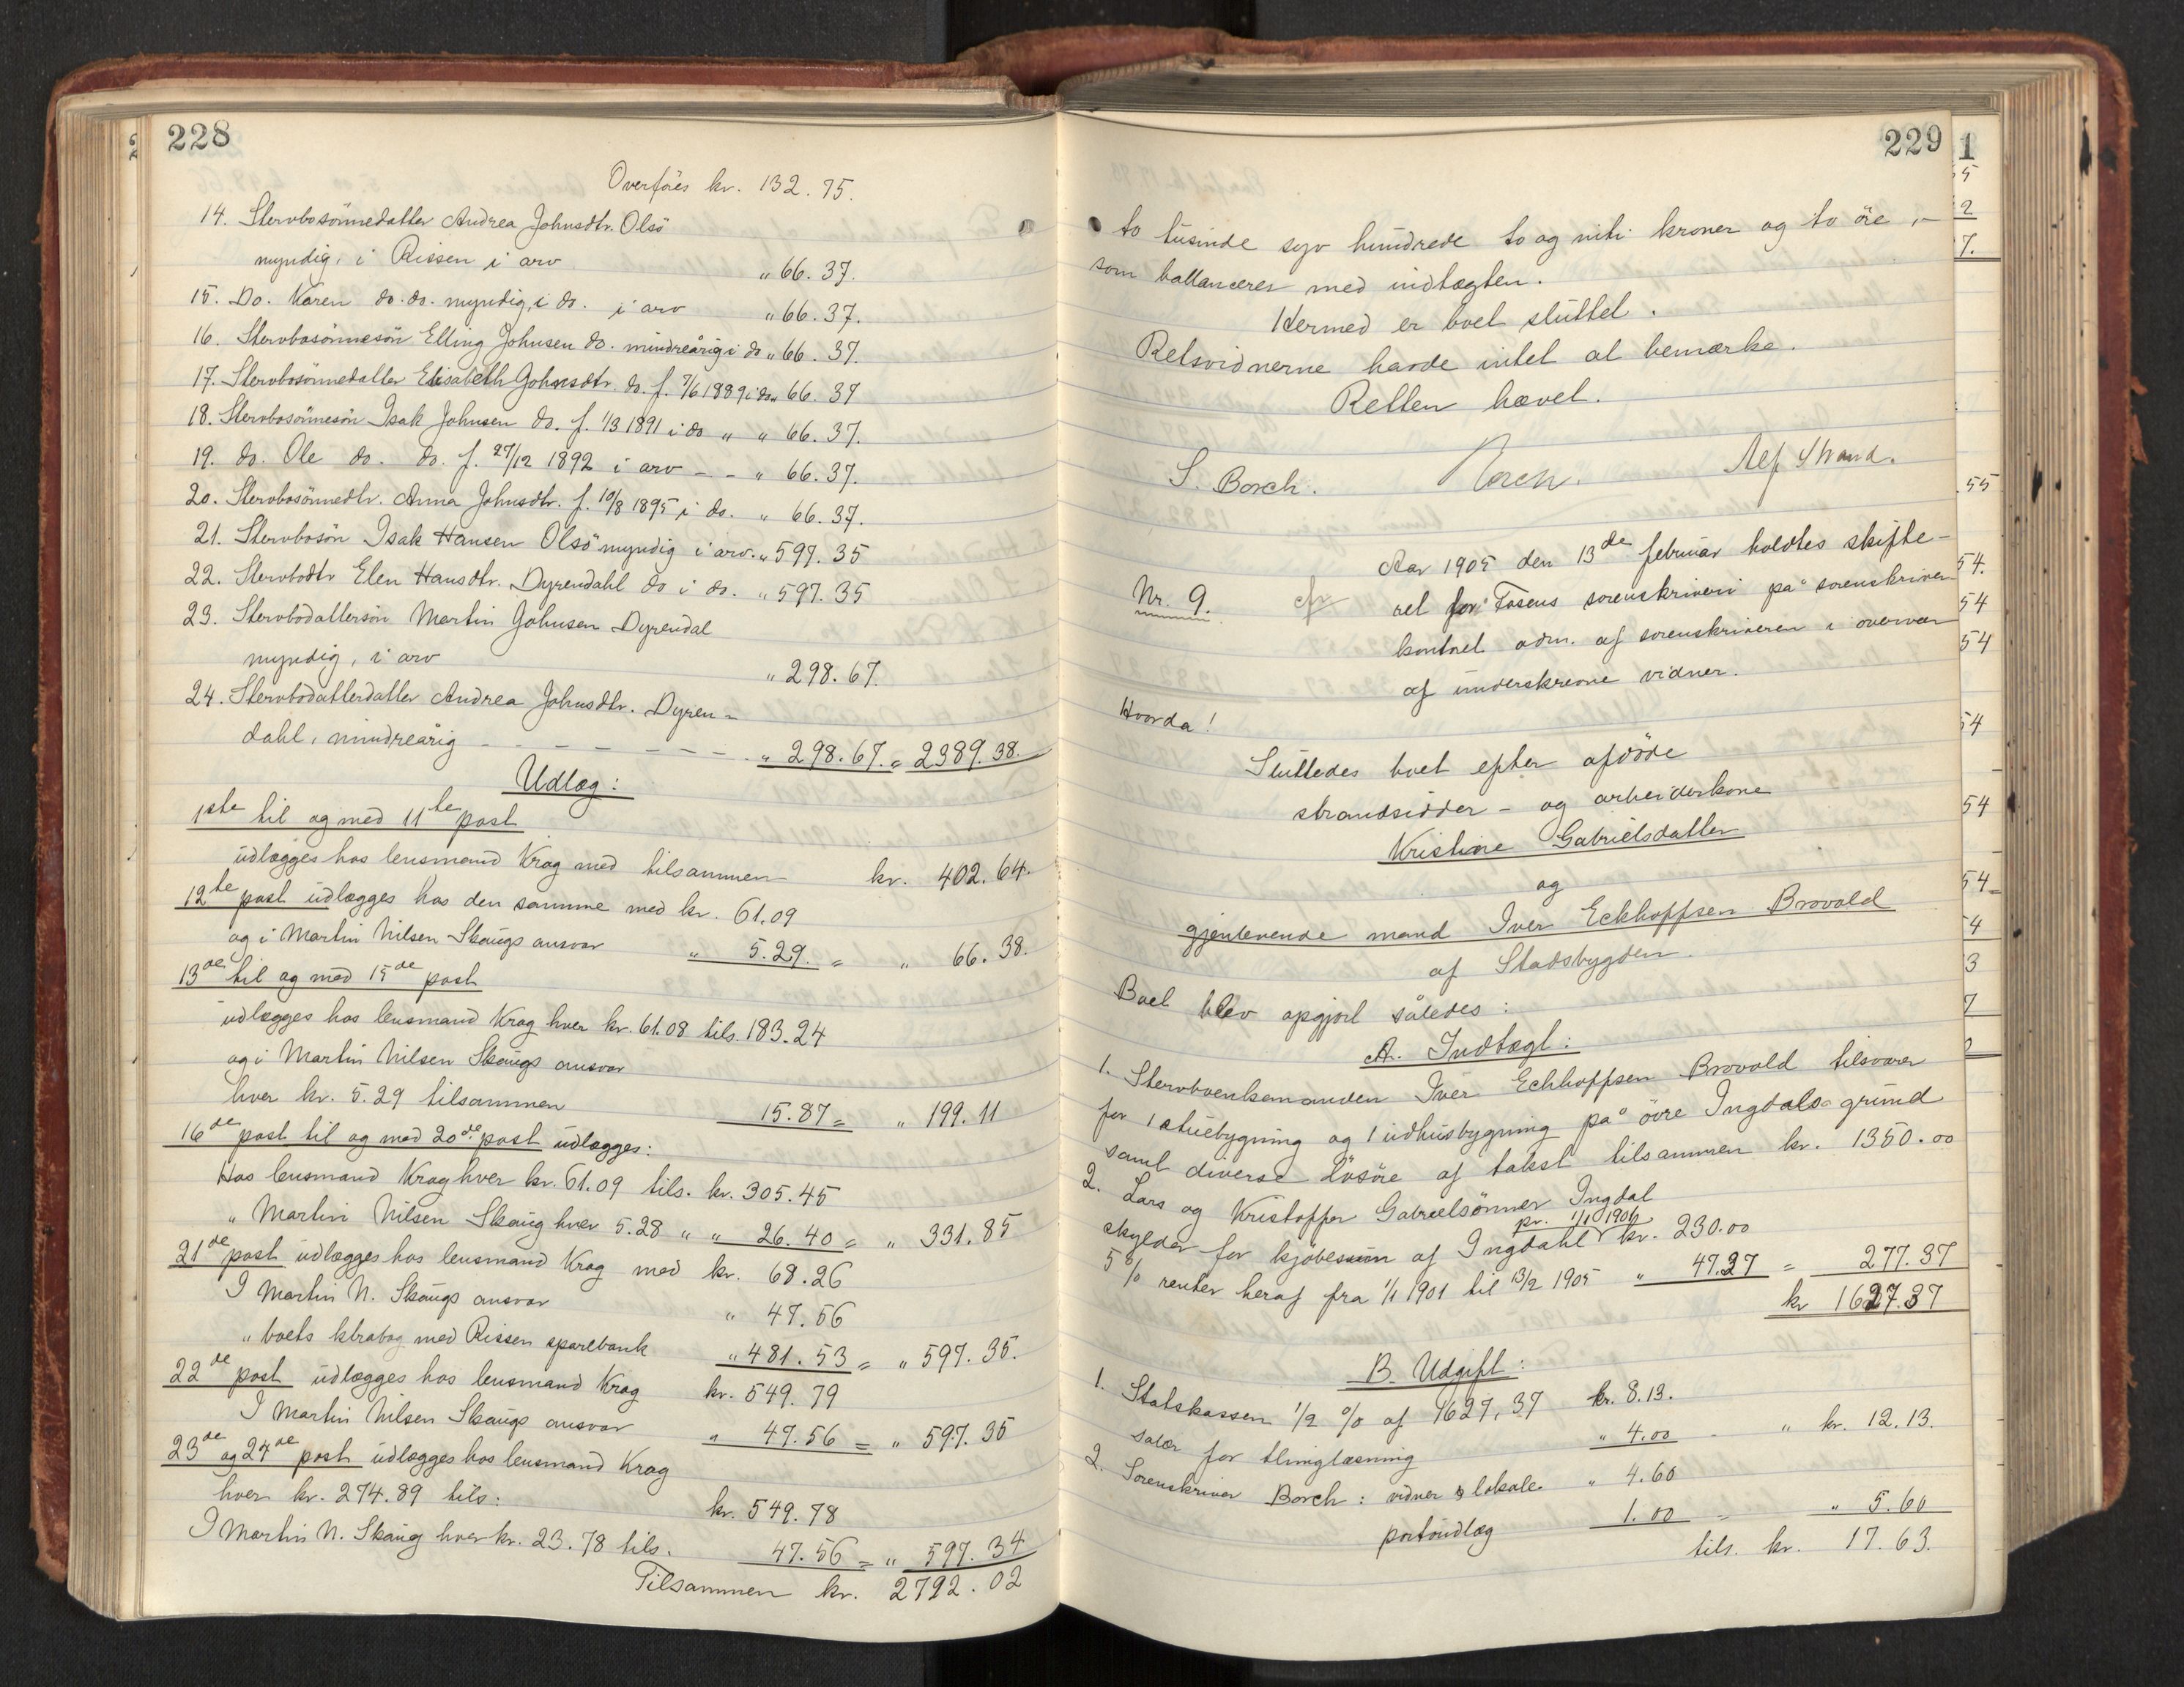 228
Overføres kr. 132.75.
14. Stervbosönnedatter Andrea Johnsdtr. Olsö
myndig, i Rissen i arv " 66.37.
15. Do. Karen do. do. myndig, i do. i arv " 66.37.
16. Stervbosönnesön Elling Johnsen do. mindreårig i do " 66.37.
17. Stervbosönnedatter Elisabeth Johnsdtr. do. f. 7/6 1889 i do " 66.37
18. Stervbosönnesön Isak Johnsen do. f. 1/3 1891 i do " " 66.37.
19. do. Ole do. do. f. 27/12 1892 i arv - - " 66.37.
20. Stervbosönnedtr. Anna Johnsdtr. f. 10/8 1895 i do. " 66.37.
21. Stervbosön Isak Hansen Olsö myndig i arv. " 597.35
22. Stervbodtr Elen Hansdtr. Dyrendahl do i do. " 597.35
23. Stervbodattersön Martin Johnsen Dyrendal
myndig, i arv " 298.67.
24. Stervbodatterdatter Andrea Johnsdtr. Dyren-
dahl, mindreårig - - - - - - - " 298.67. = 2389.38.
Udlæg:
1ste til og med 11te post
udlægges hos lensmand Krag med tilsammen kr. 402.64.
12te post udlægges hos den samme med kr. 61.09
og i Martin Nilsen Skaugs ansvar " 5.29. = " 66.38.
13de til og med 15de post
udlægges hos lensmand Krag hver kr. 61.08 tils. 183.24
og i Martin Nilsen Skaugs ansvar
hver kr. 5.29 tilsammen 15.87 = " 199.11
16de post til og med 20de post udlægges:
Hos lensmand Krag hver kr. 61.09 tils. kr. 305.45
" Martin Nilsen Skaug hver 5.28 " " 26.40 = " 331.85
21de post udlægges hos lensmand Krag med kr. 68.26
I Martin N. Skaugs ansvar " 47.56
" boets ktrabog med Rissen sparebank " 481.53 = " 597.35.
22de post udlægges hos lensmand Krag kr. 549.79
I Martin Nilsen Skaugs ansvar " 47.56 = " 597.35
23de og 24de post udlægges hos lensmand Krag
hver kr. 274.89 tils: kr. 549.78
I Martin N. Skaug hver kr. 23.78 tils. 47.56 = " 597.34
Tilsammen kr. 2792.02
229
to tusinde syv hundrede to og niti kroner og to øre, -
som ballanceres med indtægten.
Hermed er boet sluttet.
Retsvidnerne havde intet at bemærke.
Retten hævet.
S. Borch. Borch. Alf Strand.
Nr. 9. Aar 1905 den 13de februar holdtes skifte-
ret for Fosens sorenskriveri på sorenskriver-
kontoret adm. af sorenskriveren i overvær
af underskrevne vidner.
Hvorda!
Sluttedes boet efter afdöde
strandsidder- og arbeiderkone
Kristine Gabrielsdatter
og
gjenlevende mand Iver Eckhoffsen Brovold
af Stadsbygden.
Boet blev opgjort således:
A. Indtægt:
1. Stervboenkemanden Iver Eckhoffsen Brovold tilsvarer
for 1 stuebygning og 1 udhusbygning på övre Ingdals grund
samt diverse lösöre af takst tilsammen kr. 1350.00
2. Lars og Kristoffer Gabrielsönner Ingdal
skylder for kjöbesum af Ingdahl pr. 1/1 1901 kr. 230.00
5 % renter heraf fra 1/1 1901 til 13/2 1905 " 47.37 = 277.37
kr 1627.37
B. Udgift:
1. Statskassen 1/2 % af 1627,37 kr. 8.13.
salær for tinglæsning " 4.00 - " kr. 12.13.
2. Sorenskriver Borch: vidner & lokale " 4.60
portoudlæg 1.00 - " 5.60
tils. kr. 17.63.